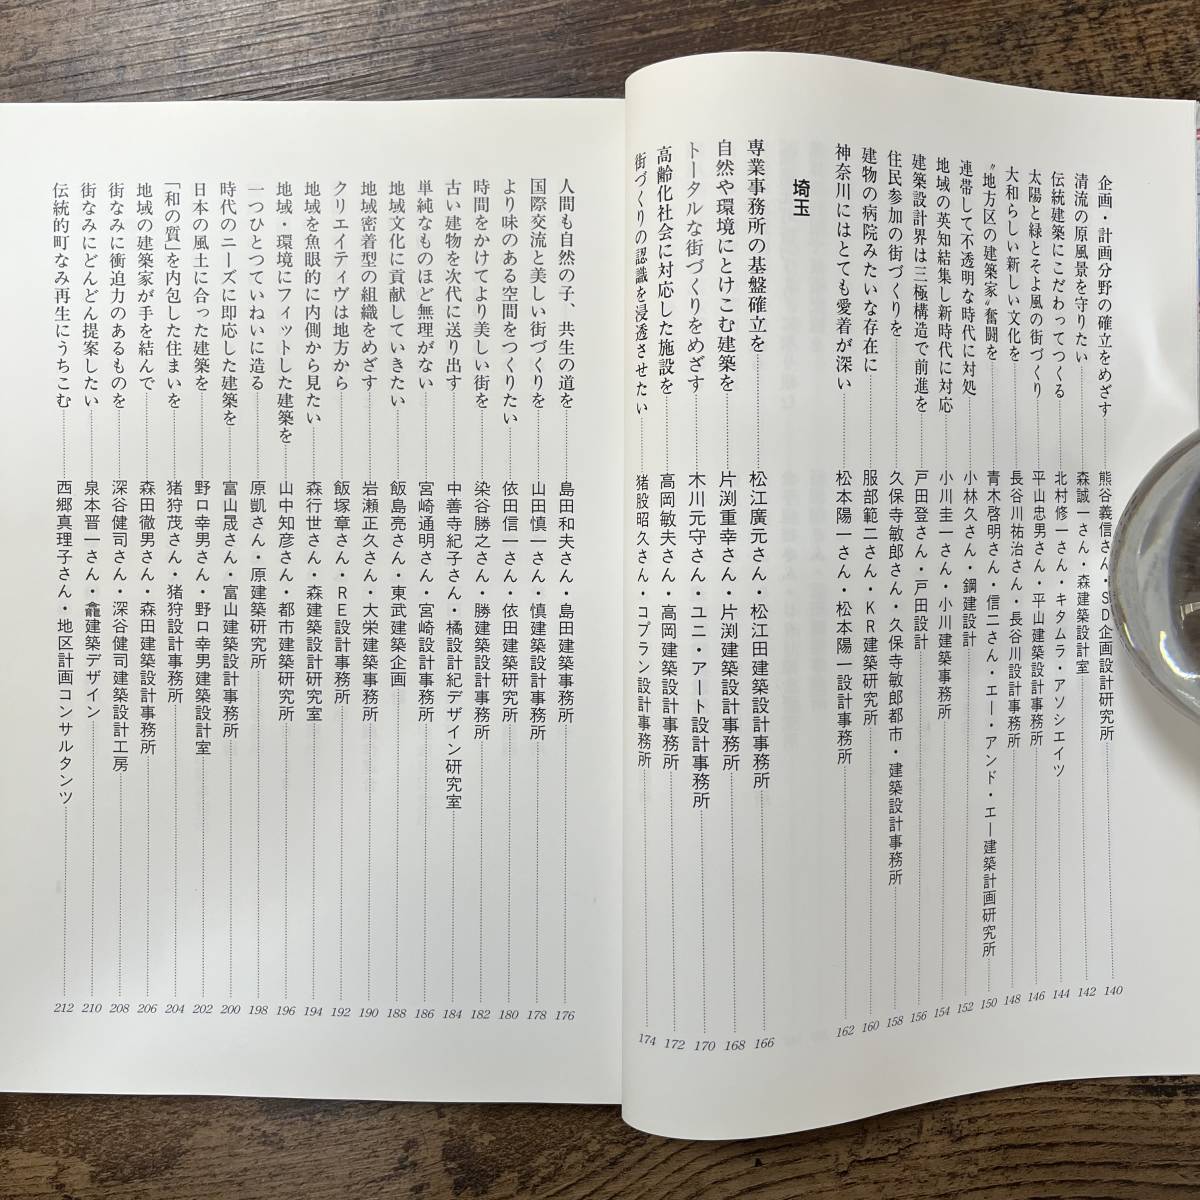 企画・計画分野の確立をめざす……熊谷義信さん・SD企画設計研究所……140
清流の原風景を守りたい……森誠一さん・森建築設計室……142
伝統建築にこだわってつくる……北村修一さん・キタムラ・アソシエイツ……144
太陽と緑とそよ風の街づくり……平山忠男さん・平山建築設計事務所……146
大和らしい新しい文化を……長谷川祐治さん・長谷川設計事務所……148
〝地方区の建築家〞奮闘を……青木啓明さん・信二さん・エー・アンド・エー建築計画研究所……150
連帯して不透明な時代に対処……小林久さん・鋼建設計……152
地域の英知結集し新時代に対応……小川圭一さん・小川建築事務所……154
建築設計界は三極構造で前進を……戸田登さん・戸田設計……156
住民参加の街づくりを……久保寺敏郎さん・久保寺敏郎都市・建築設計事務所……158
建物の病院みたいな存在に……服部範二さん・KR建築研究所……160
神奈川にはとても愛着が深い……松本陽一さん・松本陽一設計事務所……162
埼玉
専業事務所の基盤確立を……松江廣元さん・松江田建築設計事務所……166
自然や環境にとけこむ建築を……片渕重幸さん・片渕建築設計事務所……168
トータルな街づくりをめざす……木川元守さん・ユニ・アート設計事務所……170
高齢化社会に対応した施設を……高岡敏夫さん・高岡建築設計事務所……172
街づくりの認識を浸透させたい……猪股昭久さん・コプラン設計事務所……174
人間も自然の子、共生の道を……島田和夫さん・島田建築事務所……176
国際交流と美しい街づくりを……山田慎一さん・慎建築設計事務所……178
より味のある空間をつくりたい……依田信一さん・依田建築研究所……180
時間をかけてより美しい街を……染谷勝之さん・勝建築設計事務所……182
古い建物を次代に送り出す……中善寺紀子さん・橘設計紀デザイン研究室……184
単純なものほど無理がない……宮崎通明さん・宮崎設計事務所……186
地域文化に貢献していきたい……飯島亮さん・東武建築企画……188
地域密着型の組織をめざす……岩瀬正久さん・大栄建築事務所……190
クリエイティヴは地方から……飯塚章さん・RE設計事務所……192
地域を魚眼的に内側から見たい……森行世さん・森建築設計研究室……194
地域・環境にフィットした建築を……山中知彦さん・都市建築研究所……196
一つひとつていねいに造る……原凱さん・原建築研究所……198
時代のニーズに即応した建築を……富山晟さん・富山建築設計事務所……200
日本の風土に合った建築を……野口幸男さん・野口幸男建築設計室……202
「和の質」を内包した住まいを……猪狩茂さん・猪狩設計事務所……204
地域の建築家が手を結んで……森田徹男さん・森田建築設計事務所……206
街なみに衝迫力のあるものを……深谷健司さん・深谷健司建築設計工房……208
街なみにどんどん提案したい……泉本晋一さん・龕建築デザイン……210
伝統的町なみ再生にうちこむ……西郷真理子さん・地区計画コンサルタンツ……212